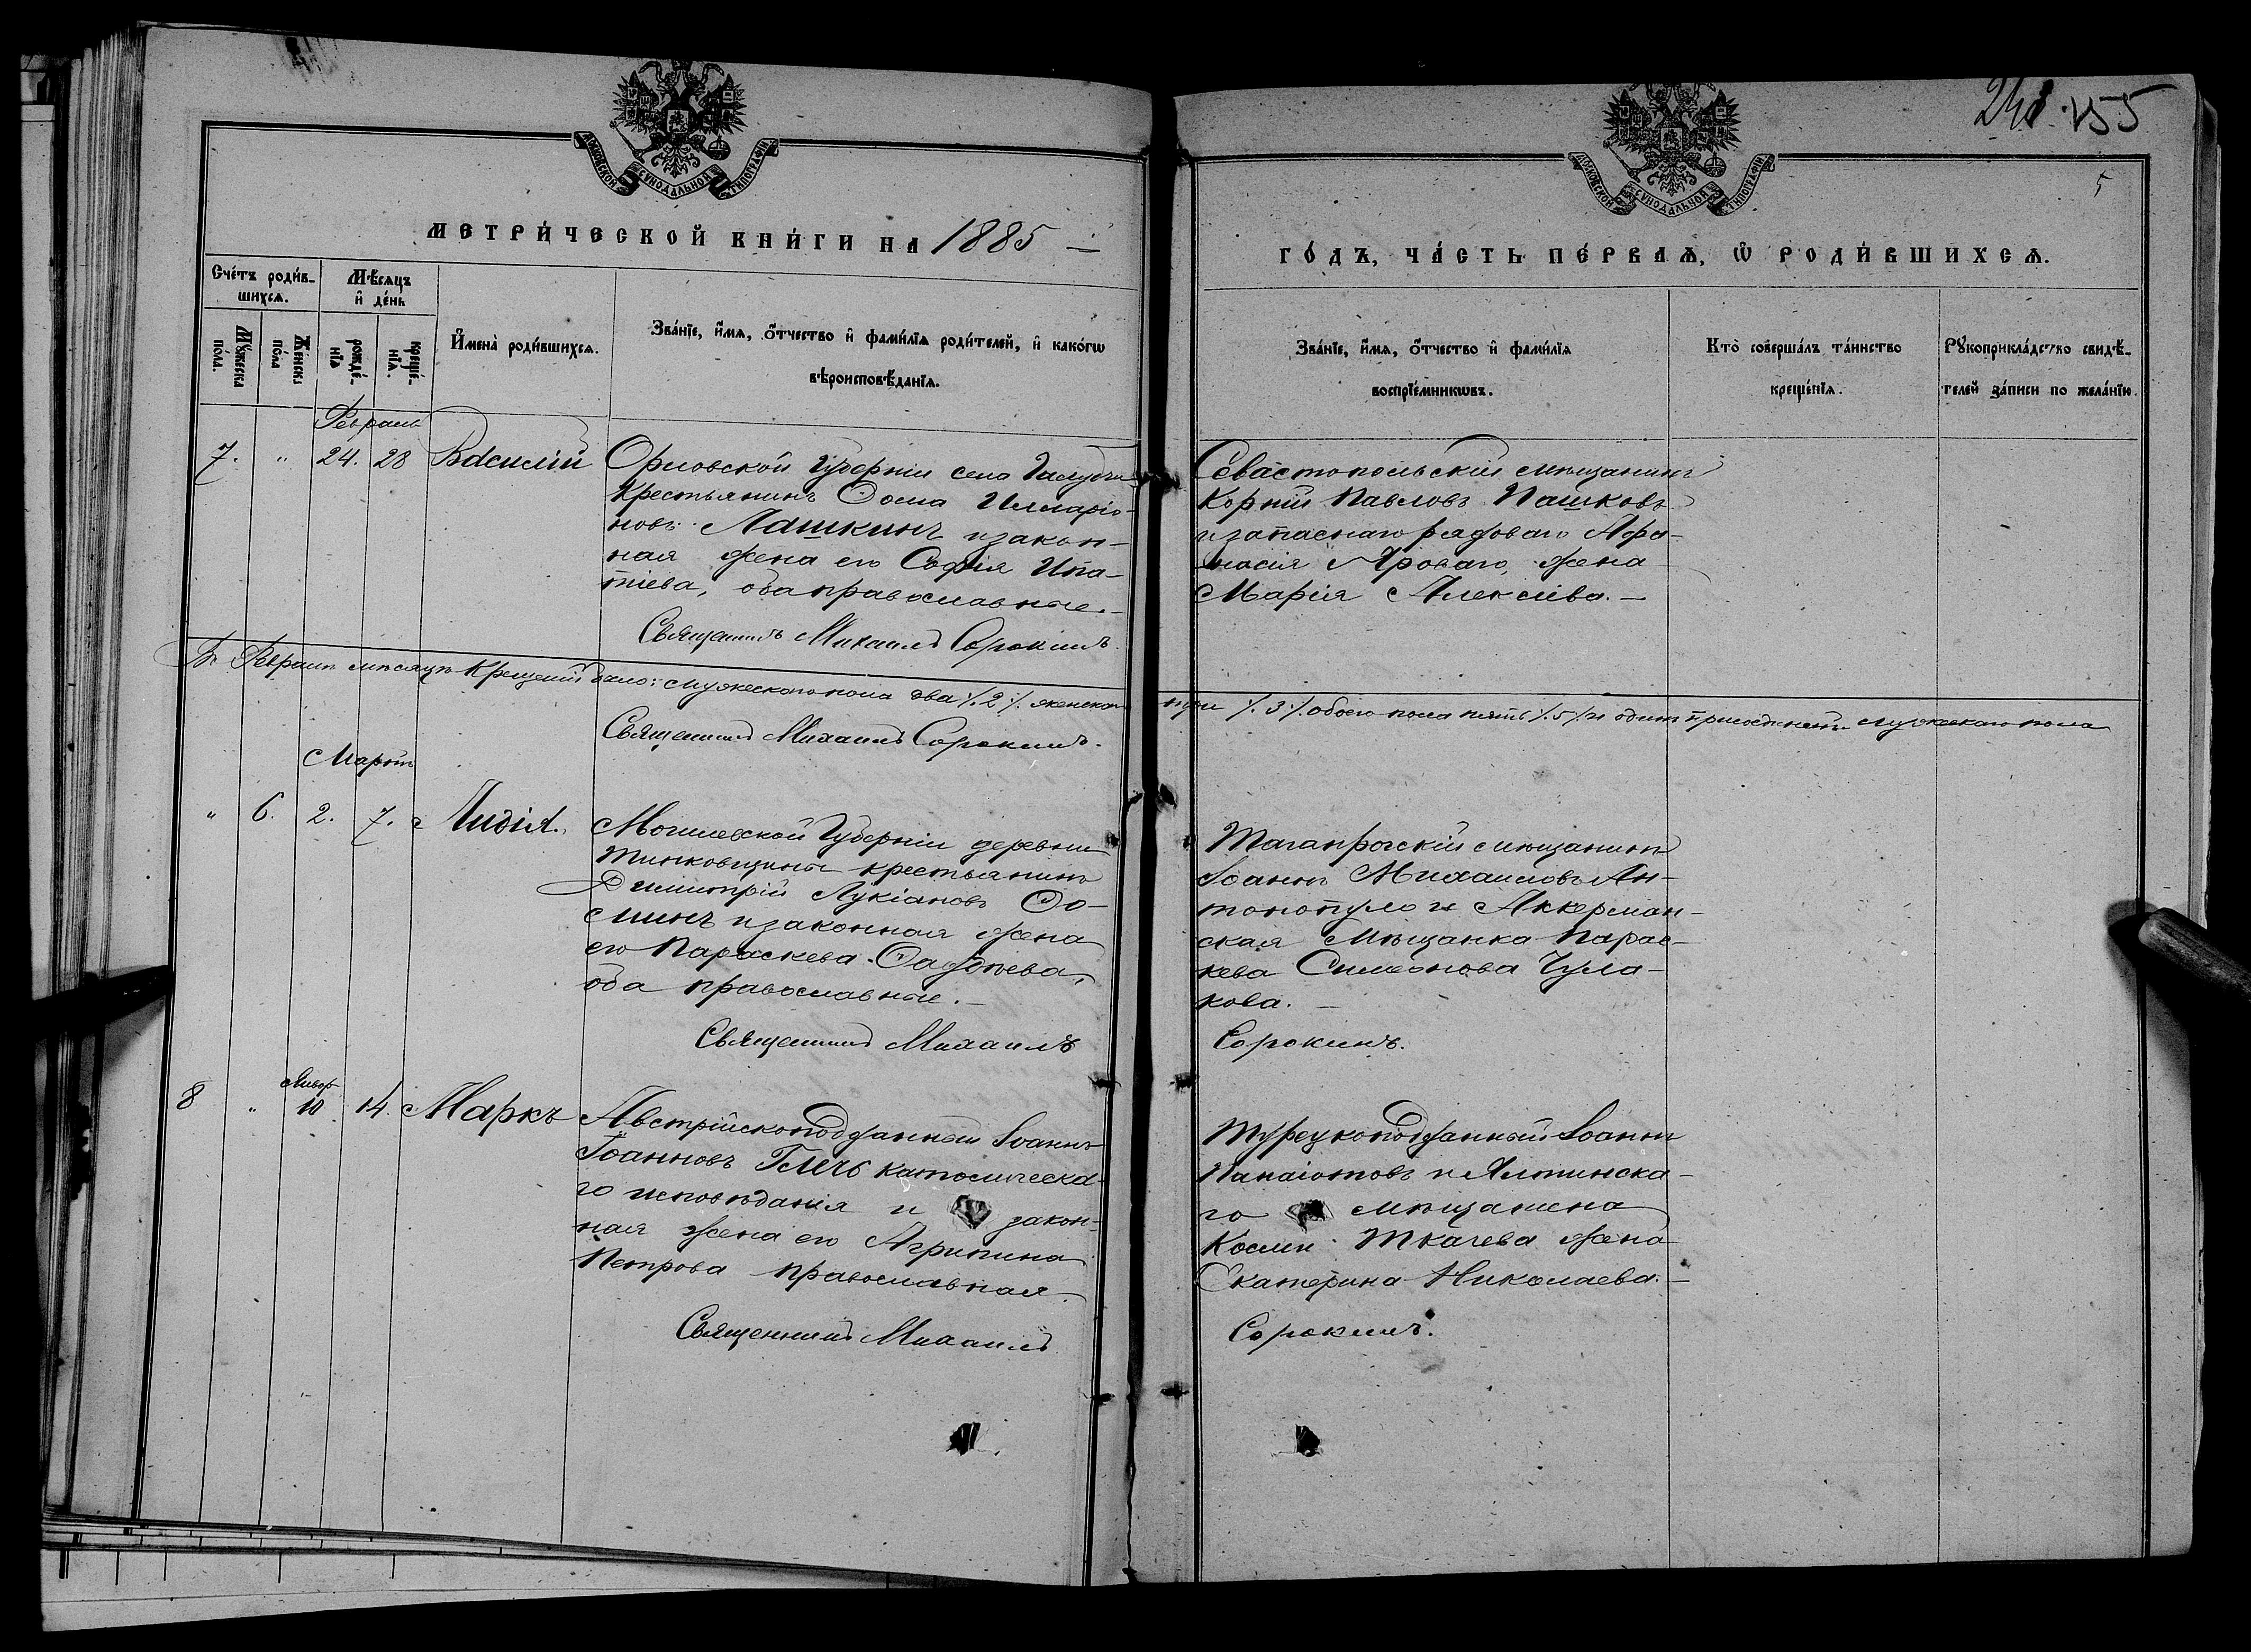 155
5
МОСКОВСКОЙ СѴНОДАЛЬНОЙ ТИПОГРАФІИ
МОСКОВСКОЙ СѴНОДАЛЬНОЙ ТИПОГРАФІИ
МЕТРИ́ЧЕСКОЙ КНИ́ГИ НА 1885
ГО́ДЪ, ЧА́СТЬ ПЕ́РВАѦ, Ѡ РОДИ́ВШИХСѦ.
Сче́тъ роди́в-
шихсѧ.
Мѣ́сяцъ
и҆ де́нь
Мꙋ́жеска
по́ла.
Же́нска
по́ла
рожде́-
нїѧ
креще́-
нїѧ.
И҆мена̀ роди́вшихсѧ.
Зва́нїе, и҆́мѧ, ѻ҆́тчество и҆ фами́лїѧ роди́телей, и҆ како́гѡ
вѣроисповѣ́данїѧ.
Зва́нїе, и҆́мѧ, ѻ҆́тчество и҆ фами́лїѧ
воспрїе́мникѡвъ.
Кто̀ соверша́лъ та́инство
креще́нїѧ.
Рꙋкоприкла́дство свидѣ́-
телей за́писи по жела́нїю.
Февраль
7. " 24. 28 Василій
Орловской Губерніи села
Крестьянинъ Ѳома Илларіо-
новъ Лашкинъ и закон-
ная жена его Софія Ипа-
тіева, оба православные.
Священникъ Михаилъ Сорокинъ.
Севастопольскій мѣщанинъ
Корній Павловъ Пашковъ
и запаснаго рядоваго Афа-
насія Яроваго, жена
Марія Алексіева. —
Въ Февралѣ мѣсяцѣ Крещеній было: мужескаго пола два /.2./. женскаго три /.3./. обоего пола пять /.5./. и одинъ присоединенъ мужескаго пола
Священникъ Михаилъ Сорокинъ.
Мартъ
" 6. 2. 7. Лидія.
Могилевской Губерніи деревни
Тинковщины крестьянинъ
Димитрій Лукіановъ Ѳо-
минъ и законная жена
его Параскева Ѳаддѣева,
оба православные. —
Священникъ Михаилъ
Таганрогскій мѣщанинъ
Іоаннъ Михаиловъ Ан-
тонопуло и Аккерман-
ская Мѣщанка Парас-
кева Симеонова Чула-
кова. —
Сорокинъ.
Январ
8 " 10 14. Маркъ
Австрійскоподданный Іоаннъ
Іоанновъ Глечъ католическа-
го исповѣданія и закон-
ная жена его Агрипина
Петрова православная.
Священникъ Михаилъ
Турецкоподданный Іоаннъ
Панаіотовъ и Ялтинска-
го мѣщанина
Космы Ткачева жена
Екатерина Николаева. —
Сорокинъ.